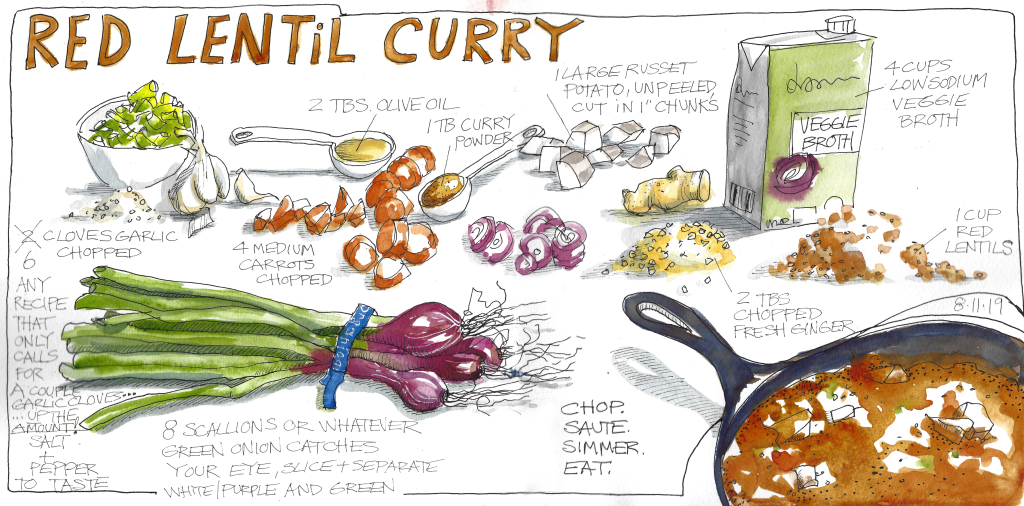 RED LENTIL CURRY
2 TBS. OLIVE OIL
1 TB CURRY
POWDER
1 LARGE RUSSET
POTATO, UNPEELED,
CUT IN 1" CHUNKS
4 CUPS
LOW SODIUM
VEGGIE
BROTH
VEGGIE
BROTH
2 CLOVES GARLIC
CHOPPED
6
ANY
RECIPE
THAT
ONLY
CALLS
FOR
A COUPLE
GARLIC CLOVES...
...UP THE
AMOUNT!
SALT
+
PEPPER
TO TASTE
4 MEDIUM
CARROTS
CHOPPED
1 CUP
RED
LENTILS
2 TBS
CHOPPED
FRESH GINGER
8.11.19
8 SCALLIONS OR WHATEVER
GREEN ONION CATCHES
YOUR EYE, SLICE + SEPARATE
WHITE/PURPLE AND GREEN
CHOP.
SAUTE.
SIMMER.
EAT.